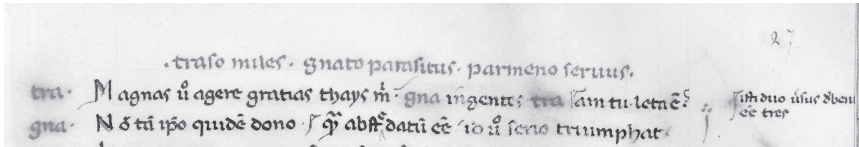 27
.traso miles. gnato parasitus. parmeno seruus.
tra. Magnas u͛o agere gratias thays m͛. gna ingentes tra ſain tu leta ē?
gna. Nō tā ip̄o quidē dono. ſ abſ te datū eē id u͛o serio triumphat.
iſti duo u͛sus dēbēnt
eē tres